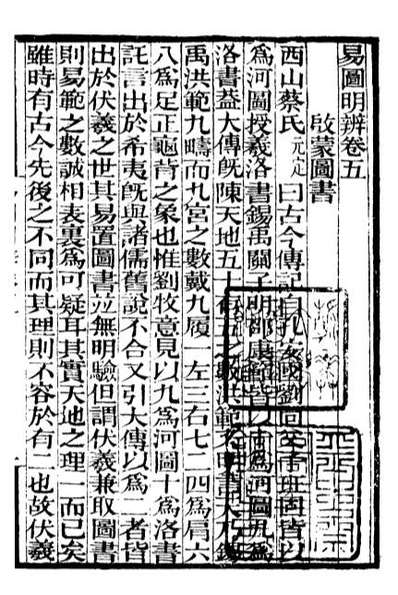 易圖明辨卷五
啟蒙圖書
西山蔡氏元定曰古今傳記自孔安國劉向父子班固皆以
爲河圖授羲洛書錫禹關子明邵康節皆以十爲河圖九爲
洛書蓋大傳旣陳天地五十有五之數洪範又明言天乃錫
禹洪範九疇而九宮之數戴九履一左三右七二四爲肩六
八爲足正龜背之象也惟劉牧意見以九爲河圖十爲洛書
託言出於希夷旣與諸儒舊說不合又引大傳以爲二者皆
出於伏羲之世其易置圖書竝無明驗但謂伏羲兼取圖書
則易範之數誠相表裏爲可疑耳其實天地之理一而已矣
雖時有古今先後之不同而其理則不容於有二也故伏羲